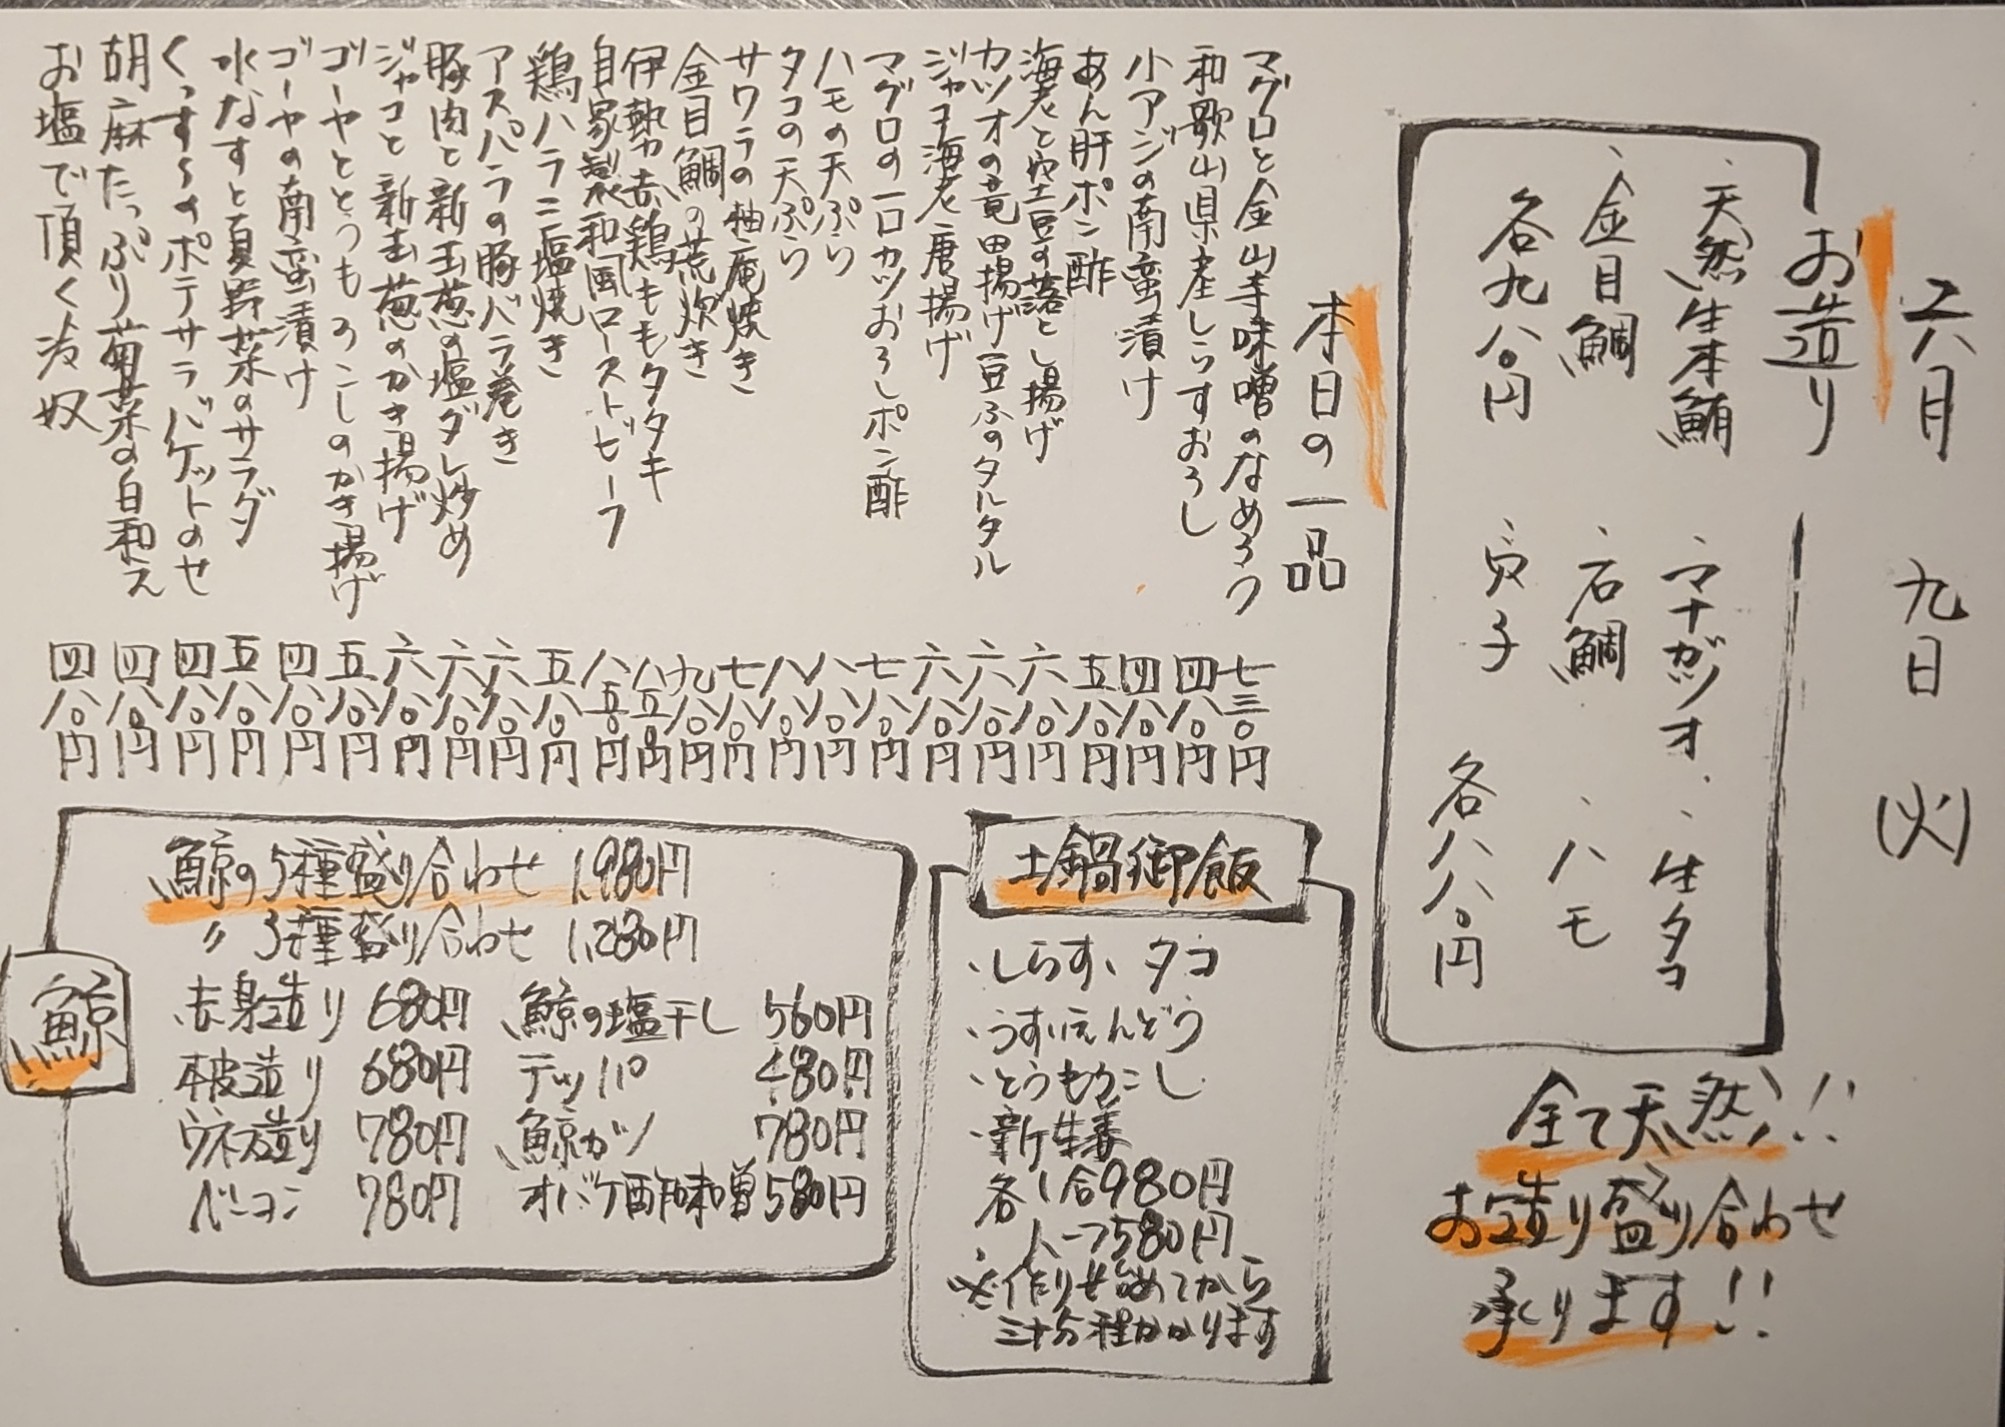 六月 九日 (火)
お造り
、天然生本鮪 、マナガツオ 、生タコ
、金目鯛 、石鯛 、ハモ
各九八〇円 、貝子 各八八〇円
全て天然!!
お造り盛り合わせ
承ります!!
本日の一品
マグロと金山寺味噌のなめろう 七三〇円
和歌山県産しらすおろし 四八〇円
小アジの南蛮漬け 四八〇円
あん肝ポン酢 五八〇円
海老と空豆の落とし揚げ 六八〇円
カツオの竜田揚げ豆ふのタルタル 六八〇円
ジャコ海老唐揚げ 六八〇円
マグロの一口カツおろしポン酢 七八〇円
ハモの天ぷら 八八〇円
タコの天ぷら 八八〇円
サワラの柚庵焼き 七八〇円
金目鯛の荒炊き 九八〇円
伊勢赤鶏ももタタキ 八五〇円
自家製和風ローストビーフ 八五〇円
鶏ハラミ塩焼き 五八〇円
アスパラの豚バラ巻き 六八〇円
豚肉と新玉葱の塩ダレ炒め 六八〇円
ジャコと新玉葱のかき揚げ 六八〇円
ゴーヤととうもろこしのかき揚げ 五八〇円
ゴーヤの南蛮漬け 四八〇円
水なすと夏野菜のサラダ 五八〇円
くっすんのポテサラバゲットのせ 四八〇円
胡麻たっぷり菊菜の白和え 四八〇円
お塩で頂く冷奴 四八〇円
土鍋御飯
、しらす、タコ
、うすいえんどう
、とうもろこし
、新生姜
各1合980円
ハーフ580円
※作り始めてから
三十分程かかります
鯨
鯨の5種盛り合わせ 1,980円
〃 3種盛り合わせ 1,280円
赤身造り 680円 鯨の塩干し 560円
本皮造り 680円 テッパ 480円
ウネ造り 780円 鯨カツ 780円
ベーコン 780円 オバケ酢味噌 580円